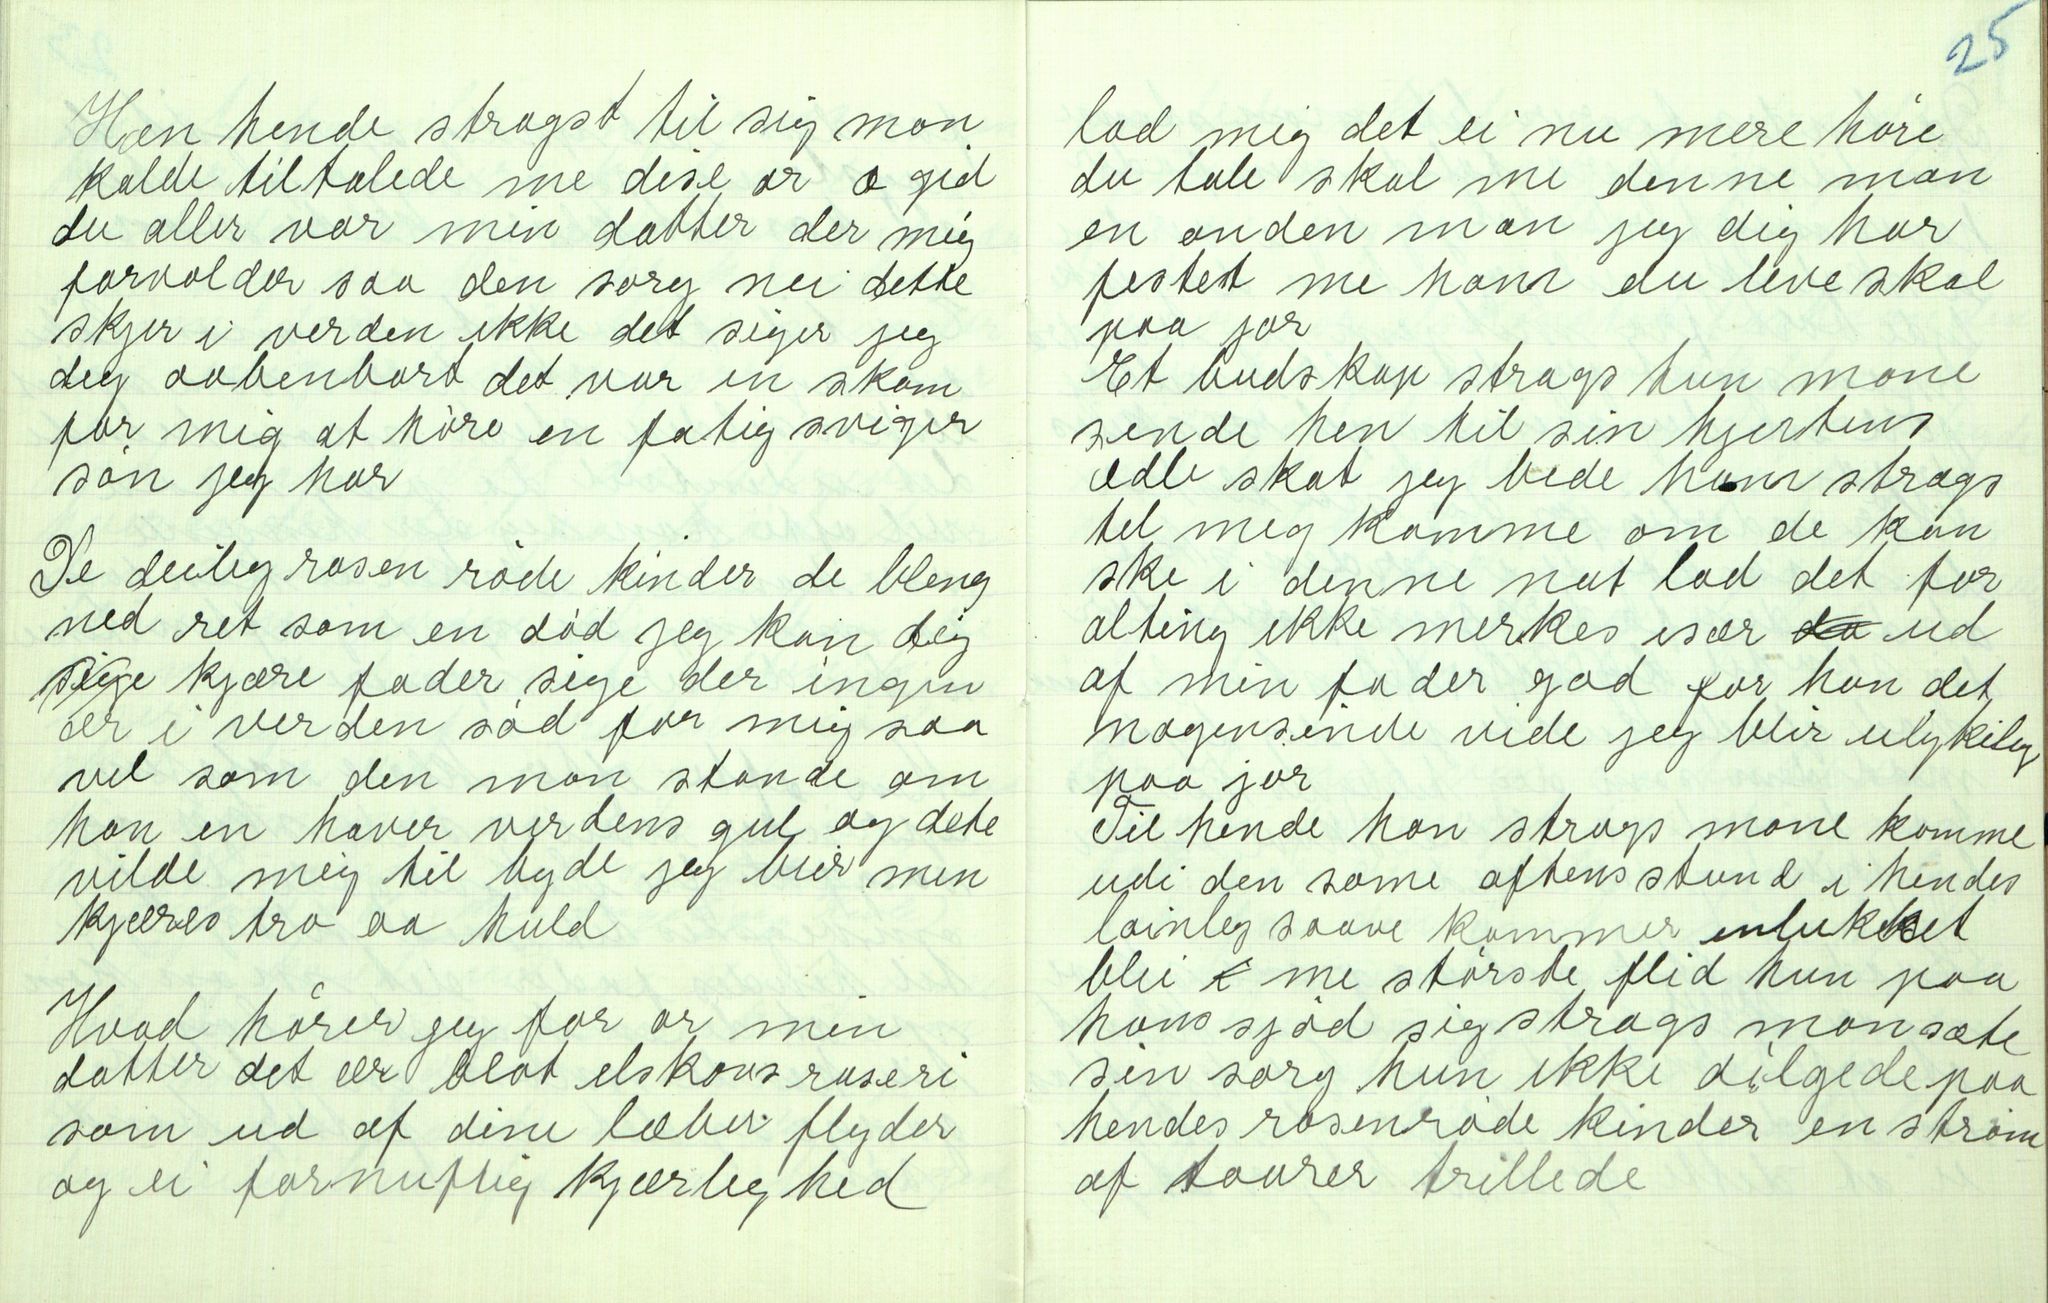 Han hende stragst til sig mon
kalde tiltalede me dise or o gid
du aller var min datter der mig
forvolder saa den sorg nei dette
skjer i verden ikke det siger jeg
deg aabenbart det var en skam
for mig at høre en fatig sviger
søn jeg har
De deileg rosen røde kinder de bleng
ned ret som en død jeg kan dig
sige kjære fader sige der ingen
er i verden sød for mig saa
vel som den mon stande om
han en haver verdens gul og dete
vilde mig til byde jeg bier men
kjæres tro aa huld
Hvad hører jeg for or min
datter det ær blot elskovs raseri
som ud af dine læber flyder
og ei fornuftig kjærleghed
25
lad mig det ei nu mere høre
du tale skal me denne man
en anden man jeg dig har
festet me ham du leve skal
paa jor
Et budskap strags hun mone
sende hen til sin hjertens
ædle skat jeg bede ham strags
tel meg komme om de kan
ske i denne nat lad det for
alting ikke merkes især da ud
af min fader god for han det
nogensinde vide jeg blir ulykeleg
paa jor
Til hende han strags mone komme
udi den same aftens stund i hendes
lainleg saave kammer enlukket
blei i me største flid hun paa
hans sjød sig strags mon sæte
sin sorg hun ikke dølgede paa
hendes rosenrøde kinder en strøm
af taarer trillede